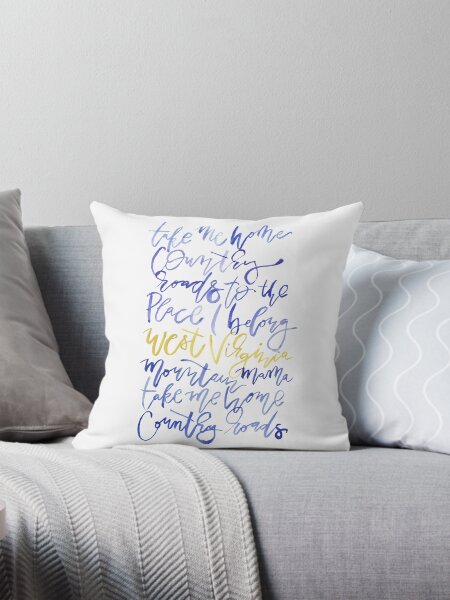 take me home
Country
roads to the
Place I belong
West Virginia
mountain mama
take me home
Country roads